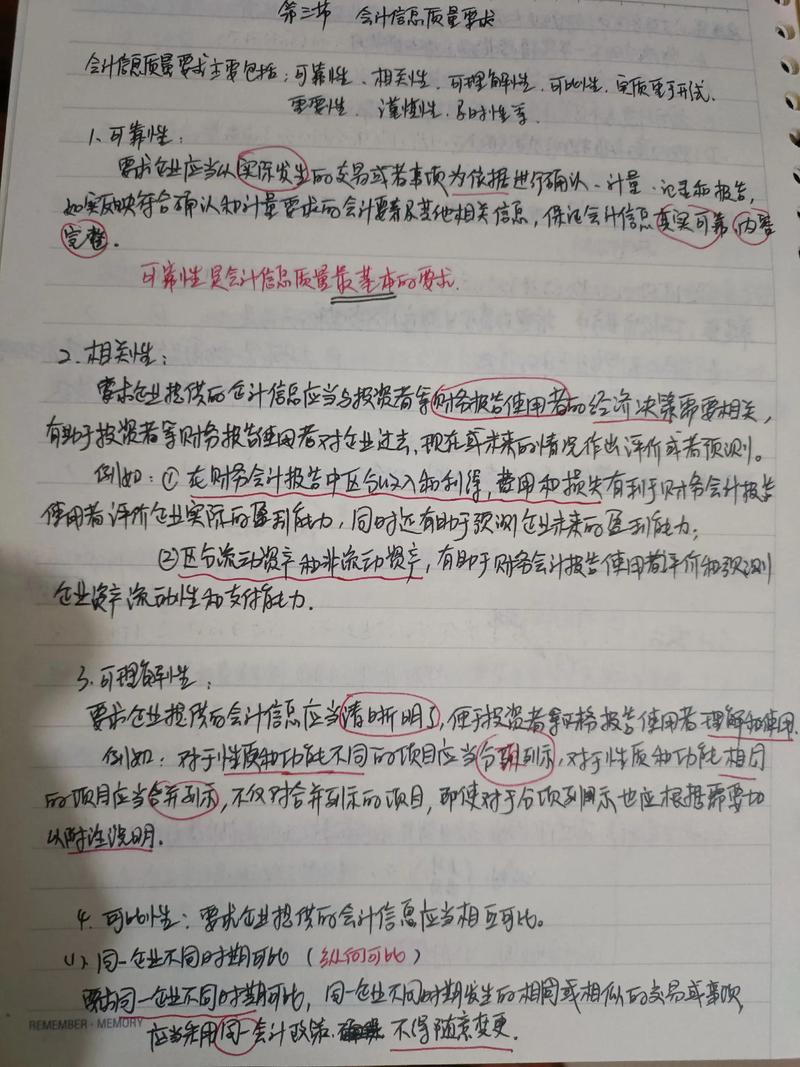 第三节 会计信息质量要求
会计信息质量要求主要包括：可靠性、相关性、可理解性、可比性、实质重于形式、
重要性、谨慎性、及时性等
1、可靠性：
要求企业应当以实际发生的交易或者事项为依据进行确认、计量、记录和报告，
如实反映符合确认和计量要求的会计要素及其他相关信息，保证会计信息真实可靠、内容
完整。
可靠性是会计信息质量最基本的要求.
2、相关性：
要求企业提供的会计信息应当与投资者等财务报告使用者的经济决策需要相关，
有助于投资者等财务报告使用者对企业过去、现在或未来的情况作出评价或者预测。
例如：①在财务会计报告中区分收入和利得，费用和损失有利于财务会计报告
使用者评价企业实际的盈利能力，同时还有助于预测企业未来的盈利能力；
②区分流动资产和非流动资产，有助于财务会计报告使用者评价和预测
企业资产流动性和支付能力.
3、可理解性：
要求企业提供的会计信息应当清晰明了，便于投资者等报告使用者理解和使用.
例如：对于性质和功能不同的项目应当分项列示，对于性质和功能相同
的项目应当合并列示，不仅对合并列示的项目，即使对于分项列示也应根据需要切
以附注说明.
4、可比性：要求企业提供的会计信息应当相互可比。
(1)、同一企业不同时期可比（纵向可比）
要求同一企业不同时期可比，同一企业不同时期发生的相同或相似的交易或事项，
应当采用同一会计政策、不得随意变更.
REMEMBER · MEMORY